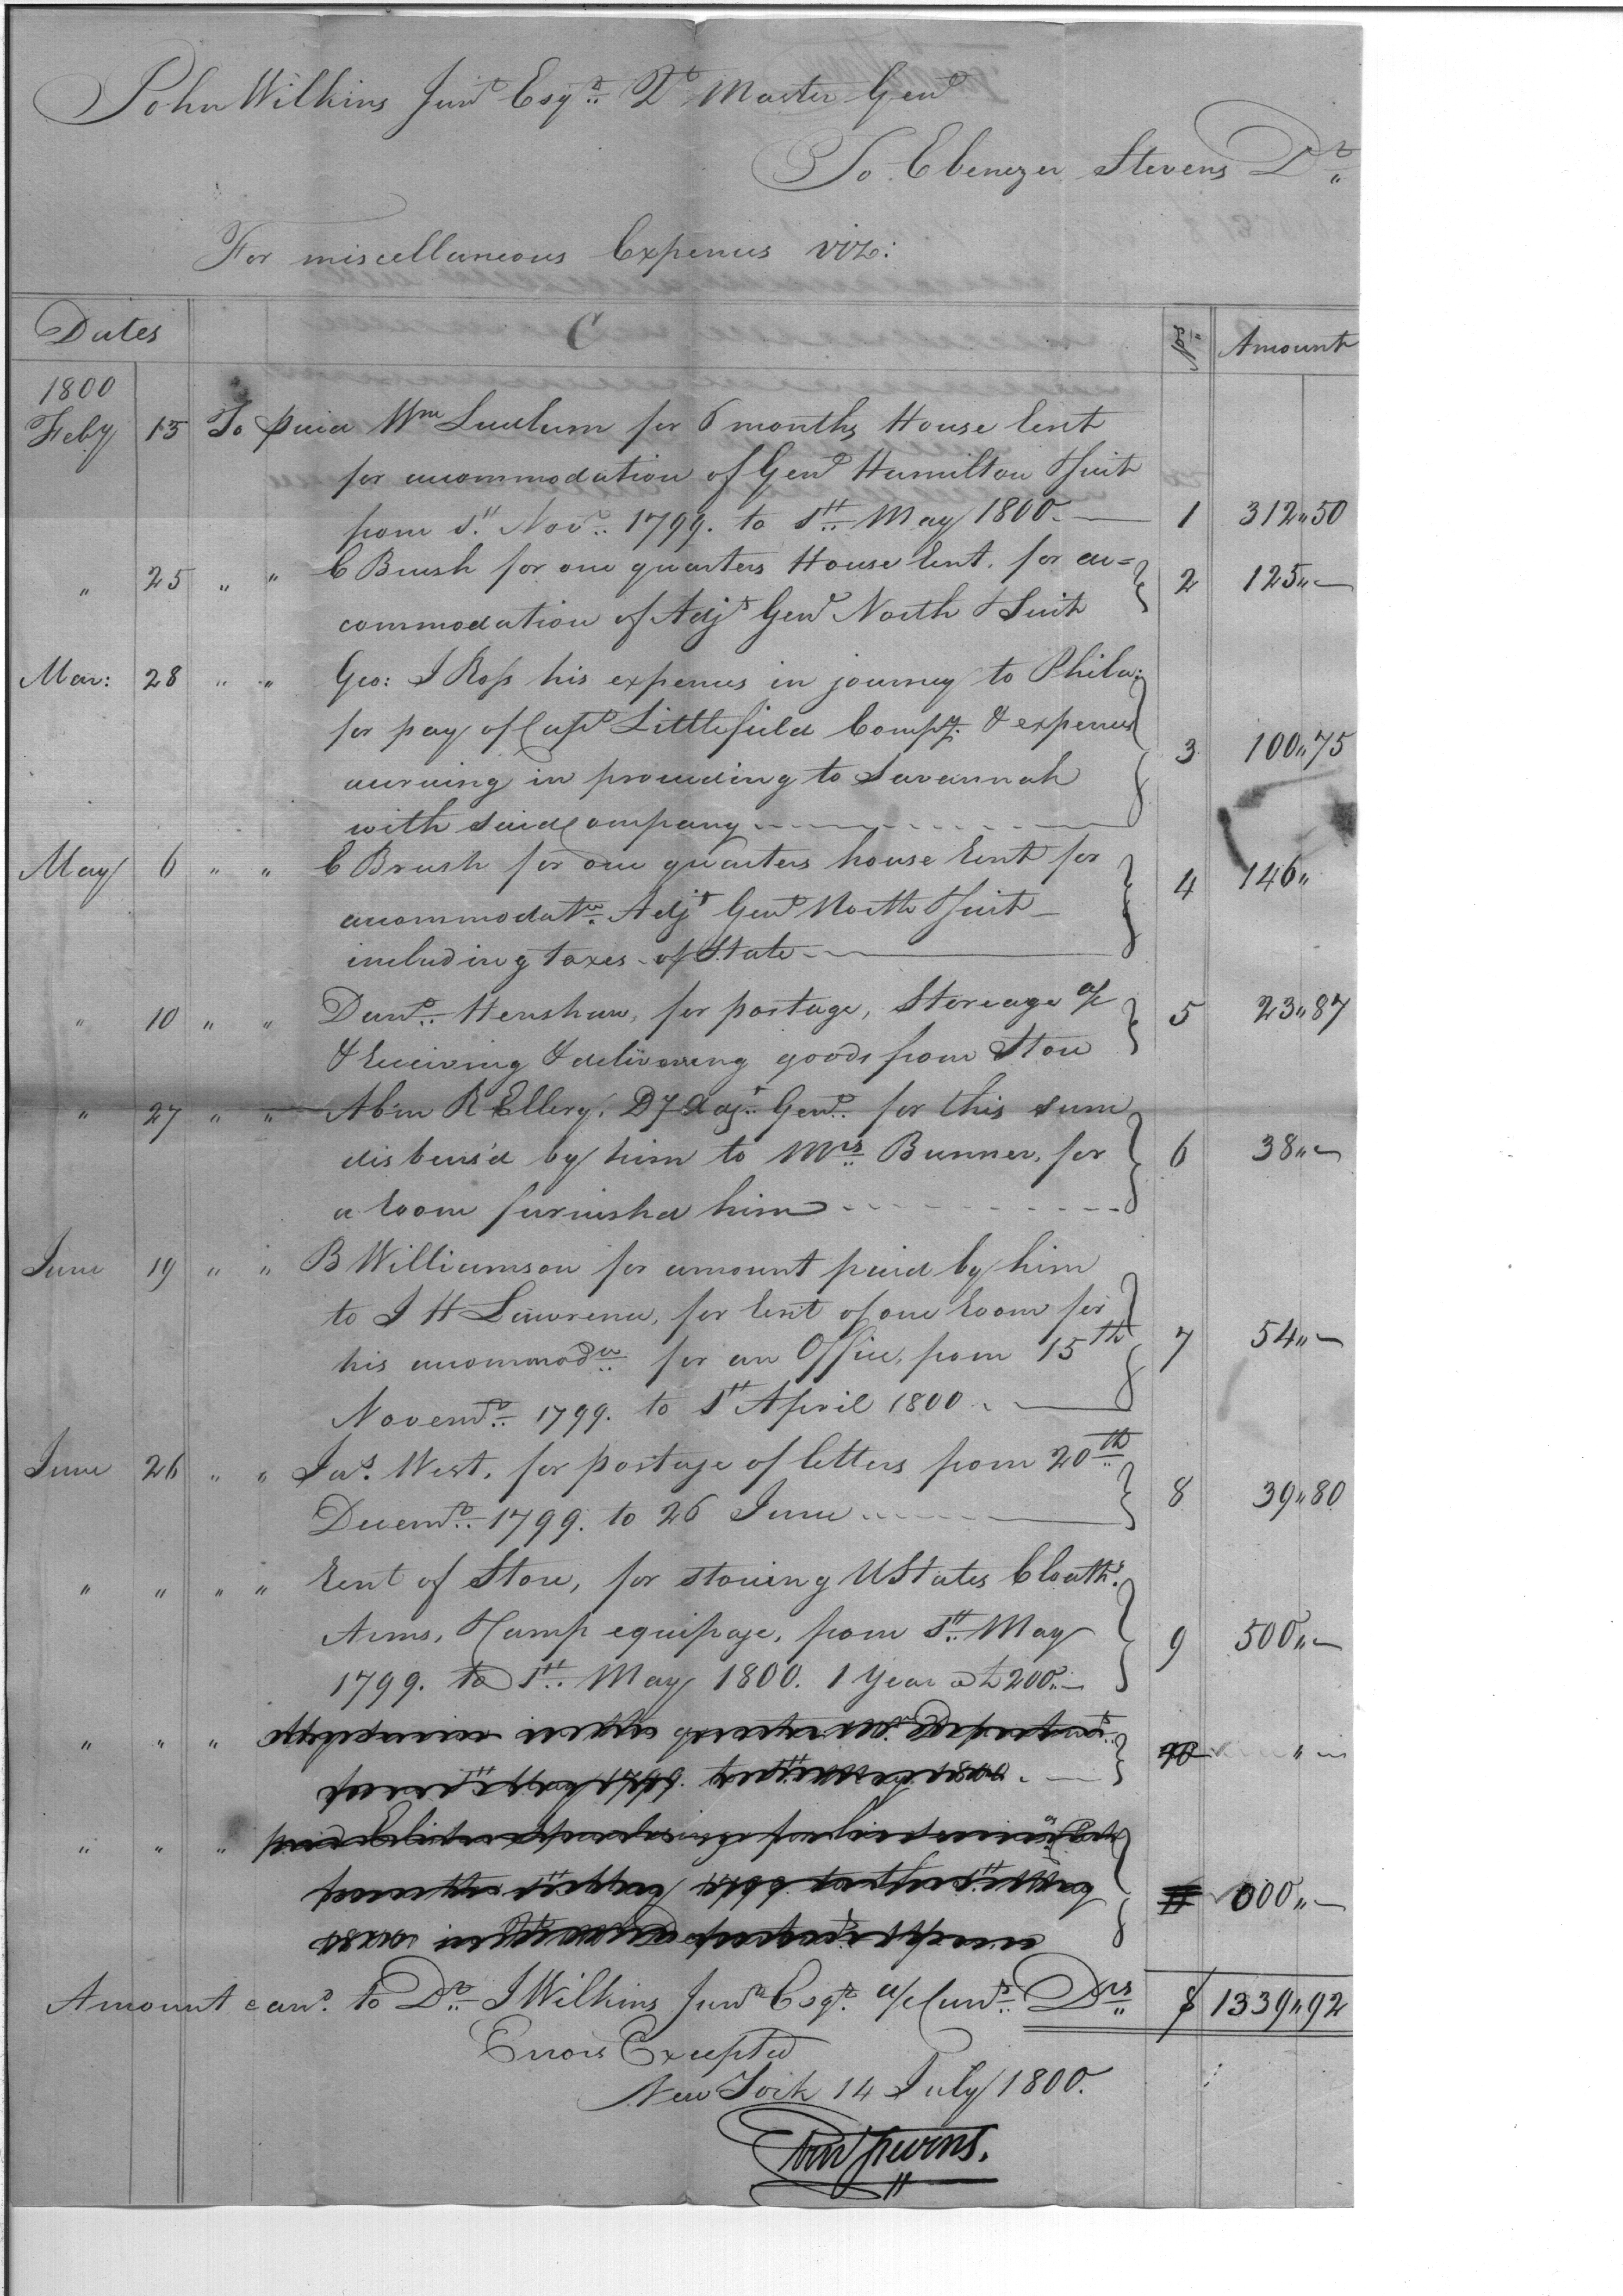 John Wilkins Junr Esqr Qr Master Genl
To Ebenezer Stevens Dr
For miscellaneous Expences viz:
Dates C No Amount
1800
Feby 15 To paid Wm Ludlum for 6 months House Rent
for accommodation of Genl Hamilton & Suit
from 1st Novr 1799. to 1st May 1800. 1 312,,50
" 25 " " E Brush for one quarters House Rent, for ac=
commodation of Adjt Genl North & Suit 2 125,,—
Mar: 28 " " Geo: I Ross his expences in journey to Phila:
for pay of Capt Littlefield Compy. & expences
accruing in proceeding to Savannah
with said Company 3 100,,75
May 6 " " E Brush for one quarters house Rent for
accommodatn. Adjt Genl North & Suit
including taxes of State 4 146,,
" 10 " " Danl. Henshaw, for portage, Storeage &c
& Receiving & delivering goods from Store 5 23,,87
" 27 " " Abm R Ellery, Dy Adjt. Genl. for this sum
disburs'd by him to Mrs Bunner, for
a Room furnished him 6 38,,—
June 19 " " B Williamson for amount paid by him
to J H Lawrence, for Rent of one Room for
his accommodn for an Office, from 15th
Novemr. 1799. to 1st April 1800. 7 54,,—
June 26 " " Jas. West, for postage of letters from 20th
Decemr. 1799. to 26 June 8 39,,80
" " " " Rent of Store, for storing U States Cloathg.
Arms, & Camp equipage, from 1st May
1799. to 1st May 1800. 1 Year at 9 500,,—
" " " 10
" " " 11 000,,—
Amount carrd. to Dr. J Wilkins Junr Esqr. a/c Currt. Drs $ 1339,,92
Errors Excepted
New York 14 July 1800.
Eben Stevens.